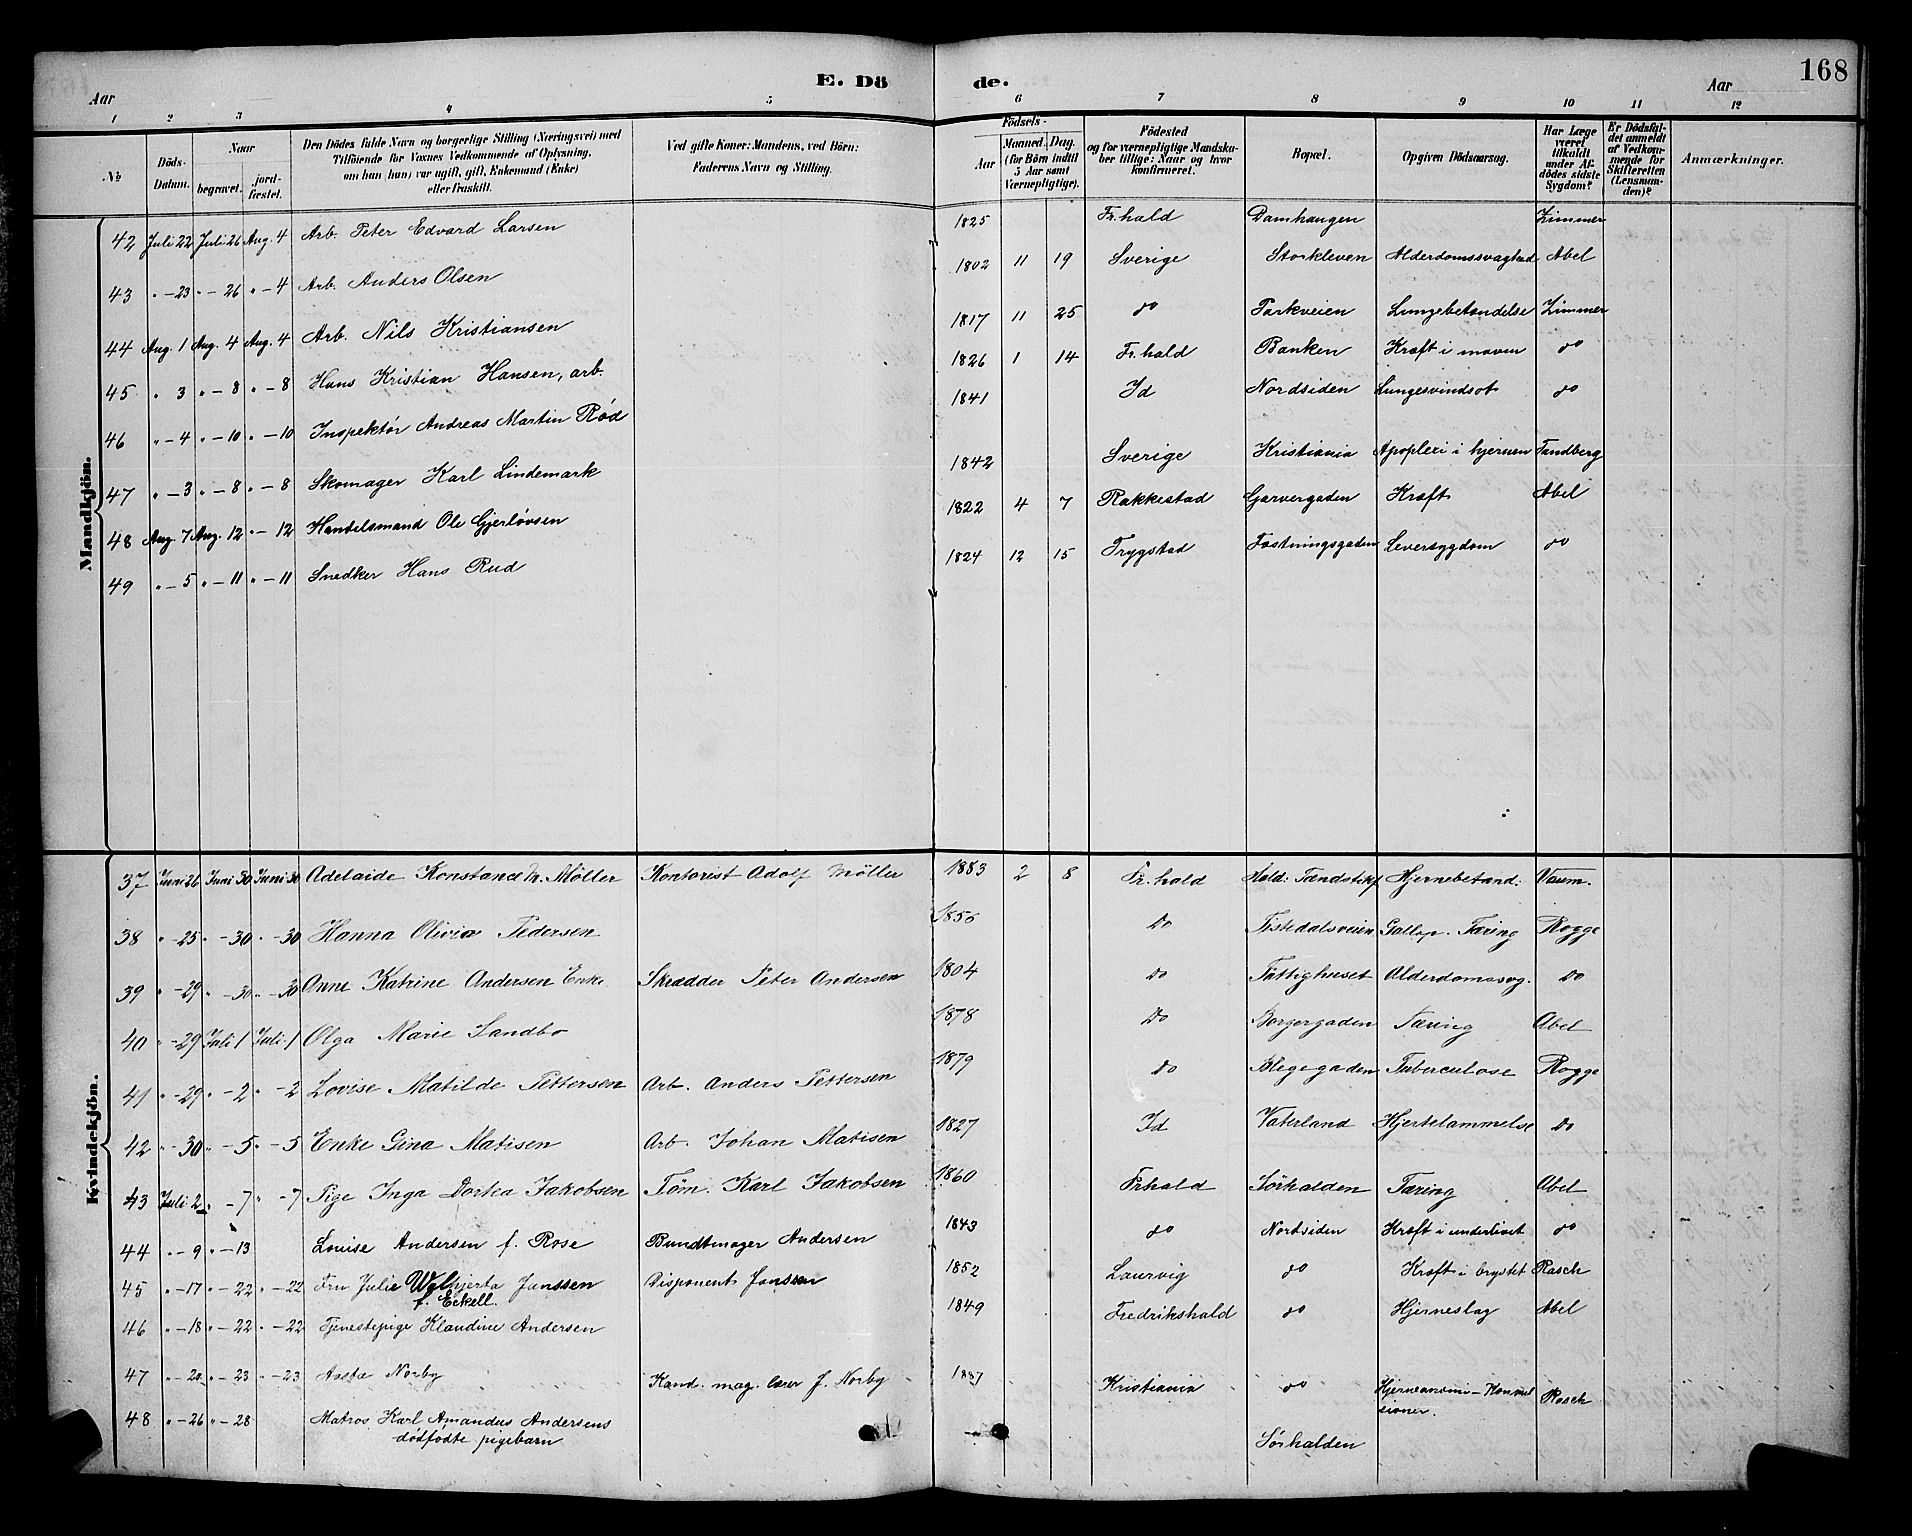 E. Dö de.
168
Aar Aar
1 2 3 4 5 6 7 8 9 10 11 12
№
Döds-Datum.
Naar
begravet.
jord-fæstet.
Den Dödes fulde Navn og borgerlige Stilling (Næringsvei) med
Tilföiende for Voxnes Vedkommende af Oplysning,
om han (hun) var ugift, gift, Enkemand (Enke)
eller fraskilt.
Ved gifte Koner: Mandens, ved Börn:
Faderens Navn og Stilling.
Födsels-
Aar
Maaned. Dag.
(for Börn indtil
5 Aar samt
Værnepligtige).
Födested
og for værnepligtige Mandska-
ber tillige: Naar og hvor
konfirmeret.
Bopæl.
Opgiven Dödsaarsag.
Har Læge
været
tilkaldt
under Af-
dödes sidste
Sygdom?
Er Dödsfal-
det anmeldt
af Vedkom-
mende for
Skifteretten
(Lensman-
den)?
Anmærkninger.
Mandkjön.
42 Juli 22 Juli 26 Aug. 4 Arb. Peter Edvard Larsen 1825 Fr.hald Damhaugen Zimmer
43 " -23 " -26 " -4 Arb. Anders Olsen 1802 11 19 Sverige Storkleven Alderdomssvaghed Abel
44 Aug. 1 Aug. 4 Aug. 4 Arb. Nils Kristiansen 1817 11 25 do Parkveien Lungebetændelse Zimmer
45 " 3 " -8 " -8 Hans Kristian Hansen, arb. 1826 1 14 Fr.hald Banken Kræft i maven do
46 " -4 " -10 " -10 Inspektør Andreas Martin Rød 1841 Id Nordsiden Lungesvindsot do
47 " -3 " -8 " -8 Skomager Karl Lindemark 1842 Sverige Kristiania Apoplexi i hjernen Tandberg
48 Aug. 7 Aug. 12 " -12 Handelsmand Ole Gjerløvsen 1822 4 7 Rakkestad Garvergaden Kræft Abel
49 " -5 " -11 " -11 Snedker Hans Rud 1824 12 15 Trygstad Fæstningsgaden Leversygdom do
Kvindekjön.
37 Juni 26 Juni 30 Juni 30 Adelaide Konstance M. Møller Kontorist Adolf Møller 1883 2 8 Fr.hald Hald: Tændstikf Hjernebetænd: Vaum.
38 " -25 " -30 " -30 Hanna Olivia Pedersen 1856 Do Tistedalsveien Gallop. Tæring Rogge
39 " -29 " -30 " -30 Anne Katrine Andersen Enke Skrædder Peter Andersen 1804 Do Fattighuset Alderdomssvag. Do
40 " -29 Juli 1 Juli 1 Olga Marie Sandbo 1878 Do Borgergaden Tæring Abel
41 " -29 " -2 " -2 Lovise Matilde Pettersen Arb. Anders Pettersen 1879 Do Blegegaden Tuberculose Rogge
42 " -30 " -5 " -5 Enke Gina Matisen Arb. Johan Matisen 1827 Id Vaterland Hjertelammelse Do
43 Juli 2 " -7 " -7 Pige Inga Dortea Jakobsen Tøm. Karl Jakobsen 1860 Frhald Sørhalden Tæring Abel
44 " -9 " -13 Louise Andersen f. Rose Bundtmager Andersen 1843 do Nordsiden Kræft i underlivet do
45 " -17 " -22 " -22 Fru Julie Walhjerta Janssen Disponent Janssen 1852 Laurvig do Kræft i brystet Rasch
f. Eckell.
46 " -18 " -22 " -22 Tjenestepige Klandine Andersen 1849 Fredrikshald do Hjerneslag Abel
47 " -20 " -23 " -23 Aasta Norby Kand. mag. lærer J. Norby 1887 Kristiania do Hjerneanæmi - Konvul
sioner. Rasch
48 " -26 " -28 Matros Karl Amandus Andersens
dødfødte pigebarn Sørhalden